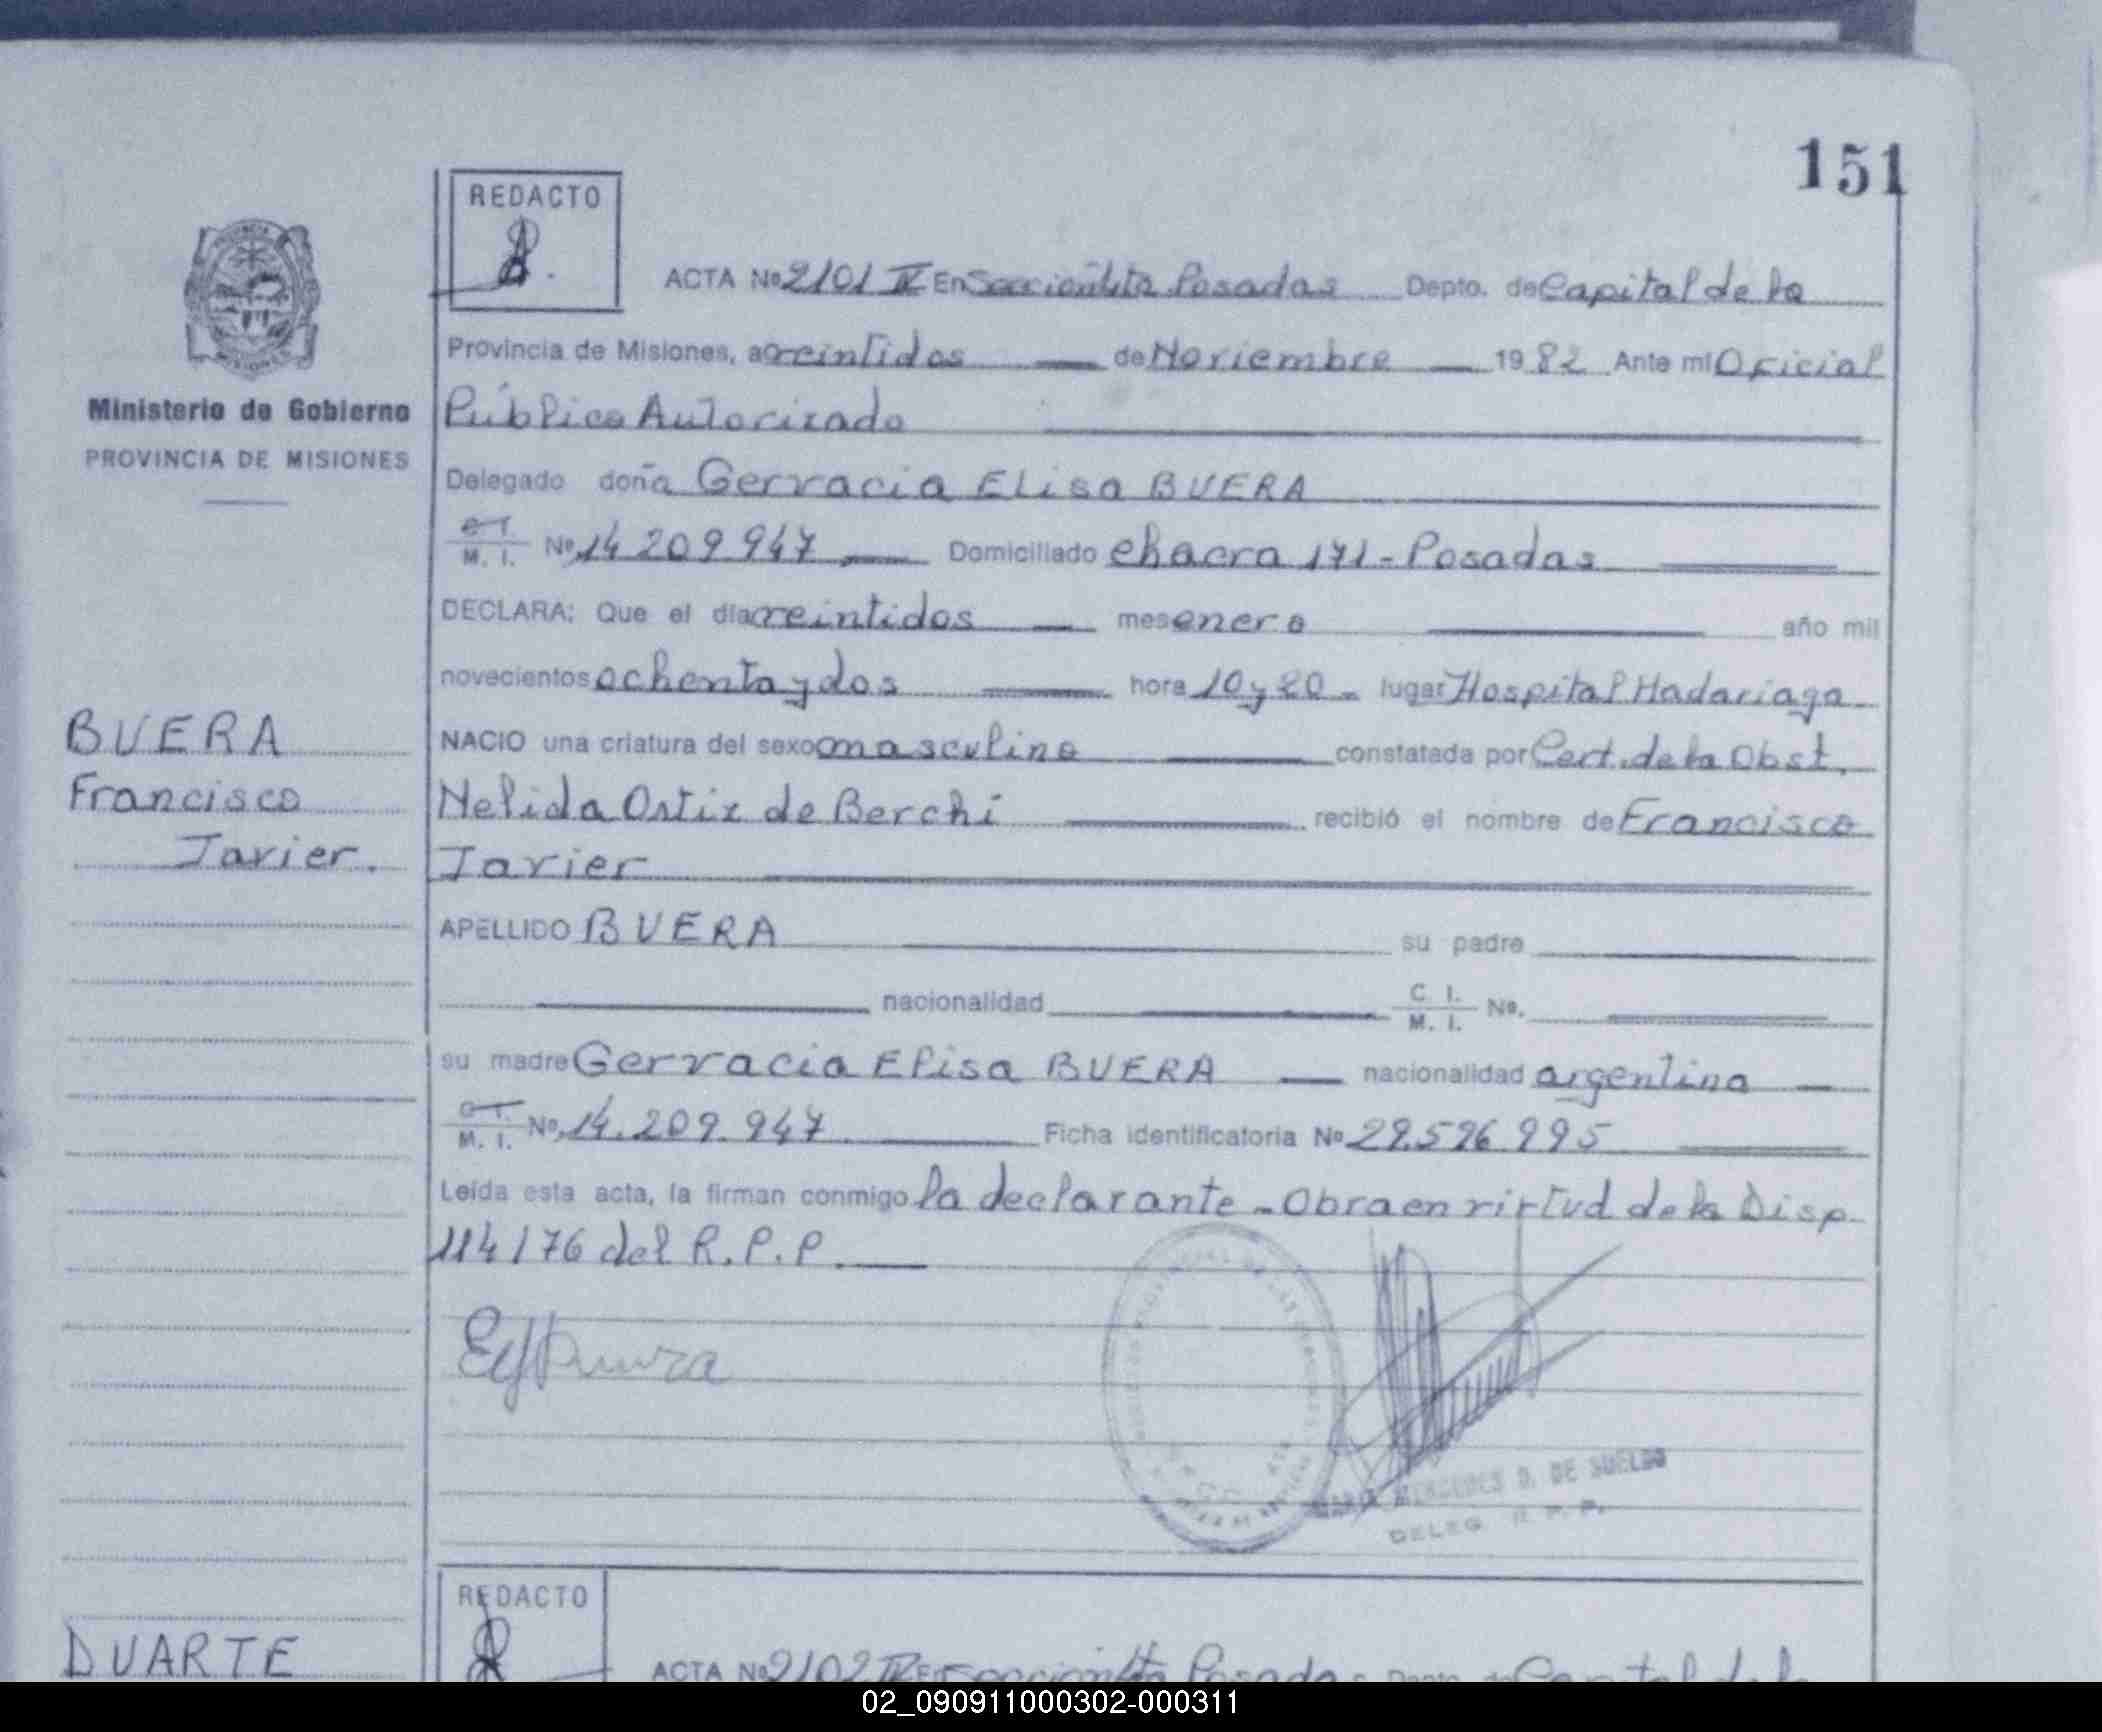 151
REDACTO
ACTA Nº 2101 IV En Sección 4ta Posadas Depto. de Capital de la
Provincia de Misiones, a veintidos de Noviembre 1982 Ante mi Oficial
Ministerio de Gobierno
Público Autorizado
PROVINCIA DE MISIONES
Delegado doña Gervacia Elisa BUERA
C. I. M. I. Nº 14 209 947 Domiciliado chacra 171 - Posadas
DECLARA: Que el día veintidos mes enero año mil
novecientos ochenta y dos hora 10 y 20 - lugar Hospital Madariaga
BUERA
NACIO una criatura del sexo masculino constatada por Cert. de la Obst.
Francisco
Nelida Ortiz de Berchi recibió el nombre de Francisco
Javier.
Javier
APELLIDO BUERA su padre
nacionalidad C. I. M. I. Nº.
su madre Gervacia Elisa BUERA nacionalidad argentina
C. I. M. I. Nº. 14.209.947 Ficha identificatoria Nº 29.526.995
Leída esta acta, la firman conmigo la declarante - Obra en virtud de la Disp.
114/76 del R.P.P.
MERCEDES D. DE SUELDO
DELEG. R. P. P.
REDACTO
DUARTE
ACTA Nº 2102 IV En Sección 4ta Posadas Depto. de Capital de la
02_090911000302-000311